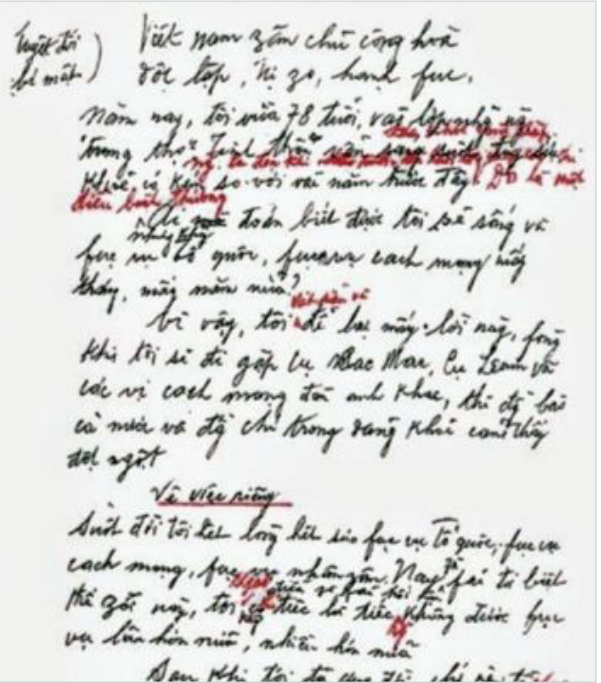 Tuyệt đối
bí mật
Việt nam zân chủ cộng hoà
độc lập, tự zo, hạnh fuc.
Năm nay, tôi vừa 78 tuổi, vào lớp những người
"trung thọ". Tinh thần vẫn sáng suốt, thân thể
khoẻ có kém so với vài năm trước đây. Đó là một
điều bình thường
Ai đoán biết được tôi sẽ sống và
fục vụ tổ quốc, fục vụ cách mạng mấy
tháng, mấy năm nữa?
Vì vậy, tôi để lại mấy lời này, fòng
khi tôi sẽ đi gặp cụ Các Mac, cụ Lenin và
các vị cách mạng đàn anh khác, thì đồng bào
cả nước và đồng chí trong đảng khỏi cảm thấy
đột ngột
Về việc riêng
Suốt đời tôi hết lòng hết sức fục vụ Tổ quốc, fục vụ
cách mạng, fục vụ nhân zân. Nay zù fải từ biệt
thế zới này, tôi
tiếc là tiếc không được fục
vụ lâu hơn nữa, nhiều hơn nữa
Sau khi tôi